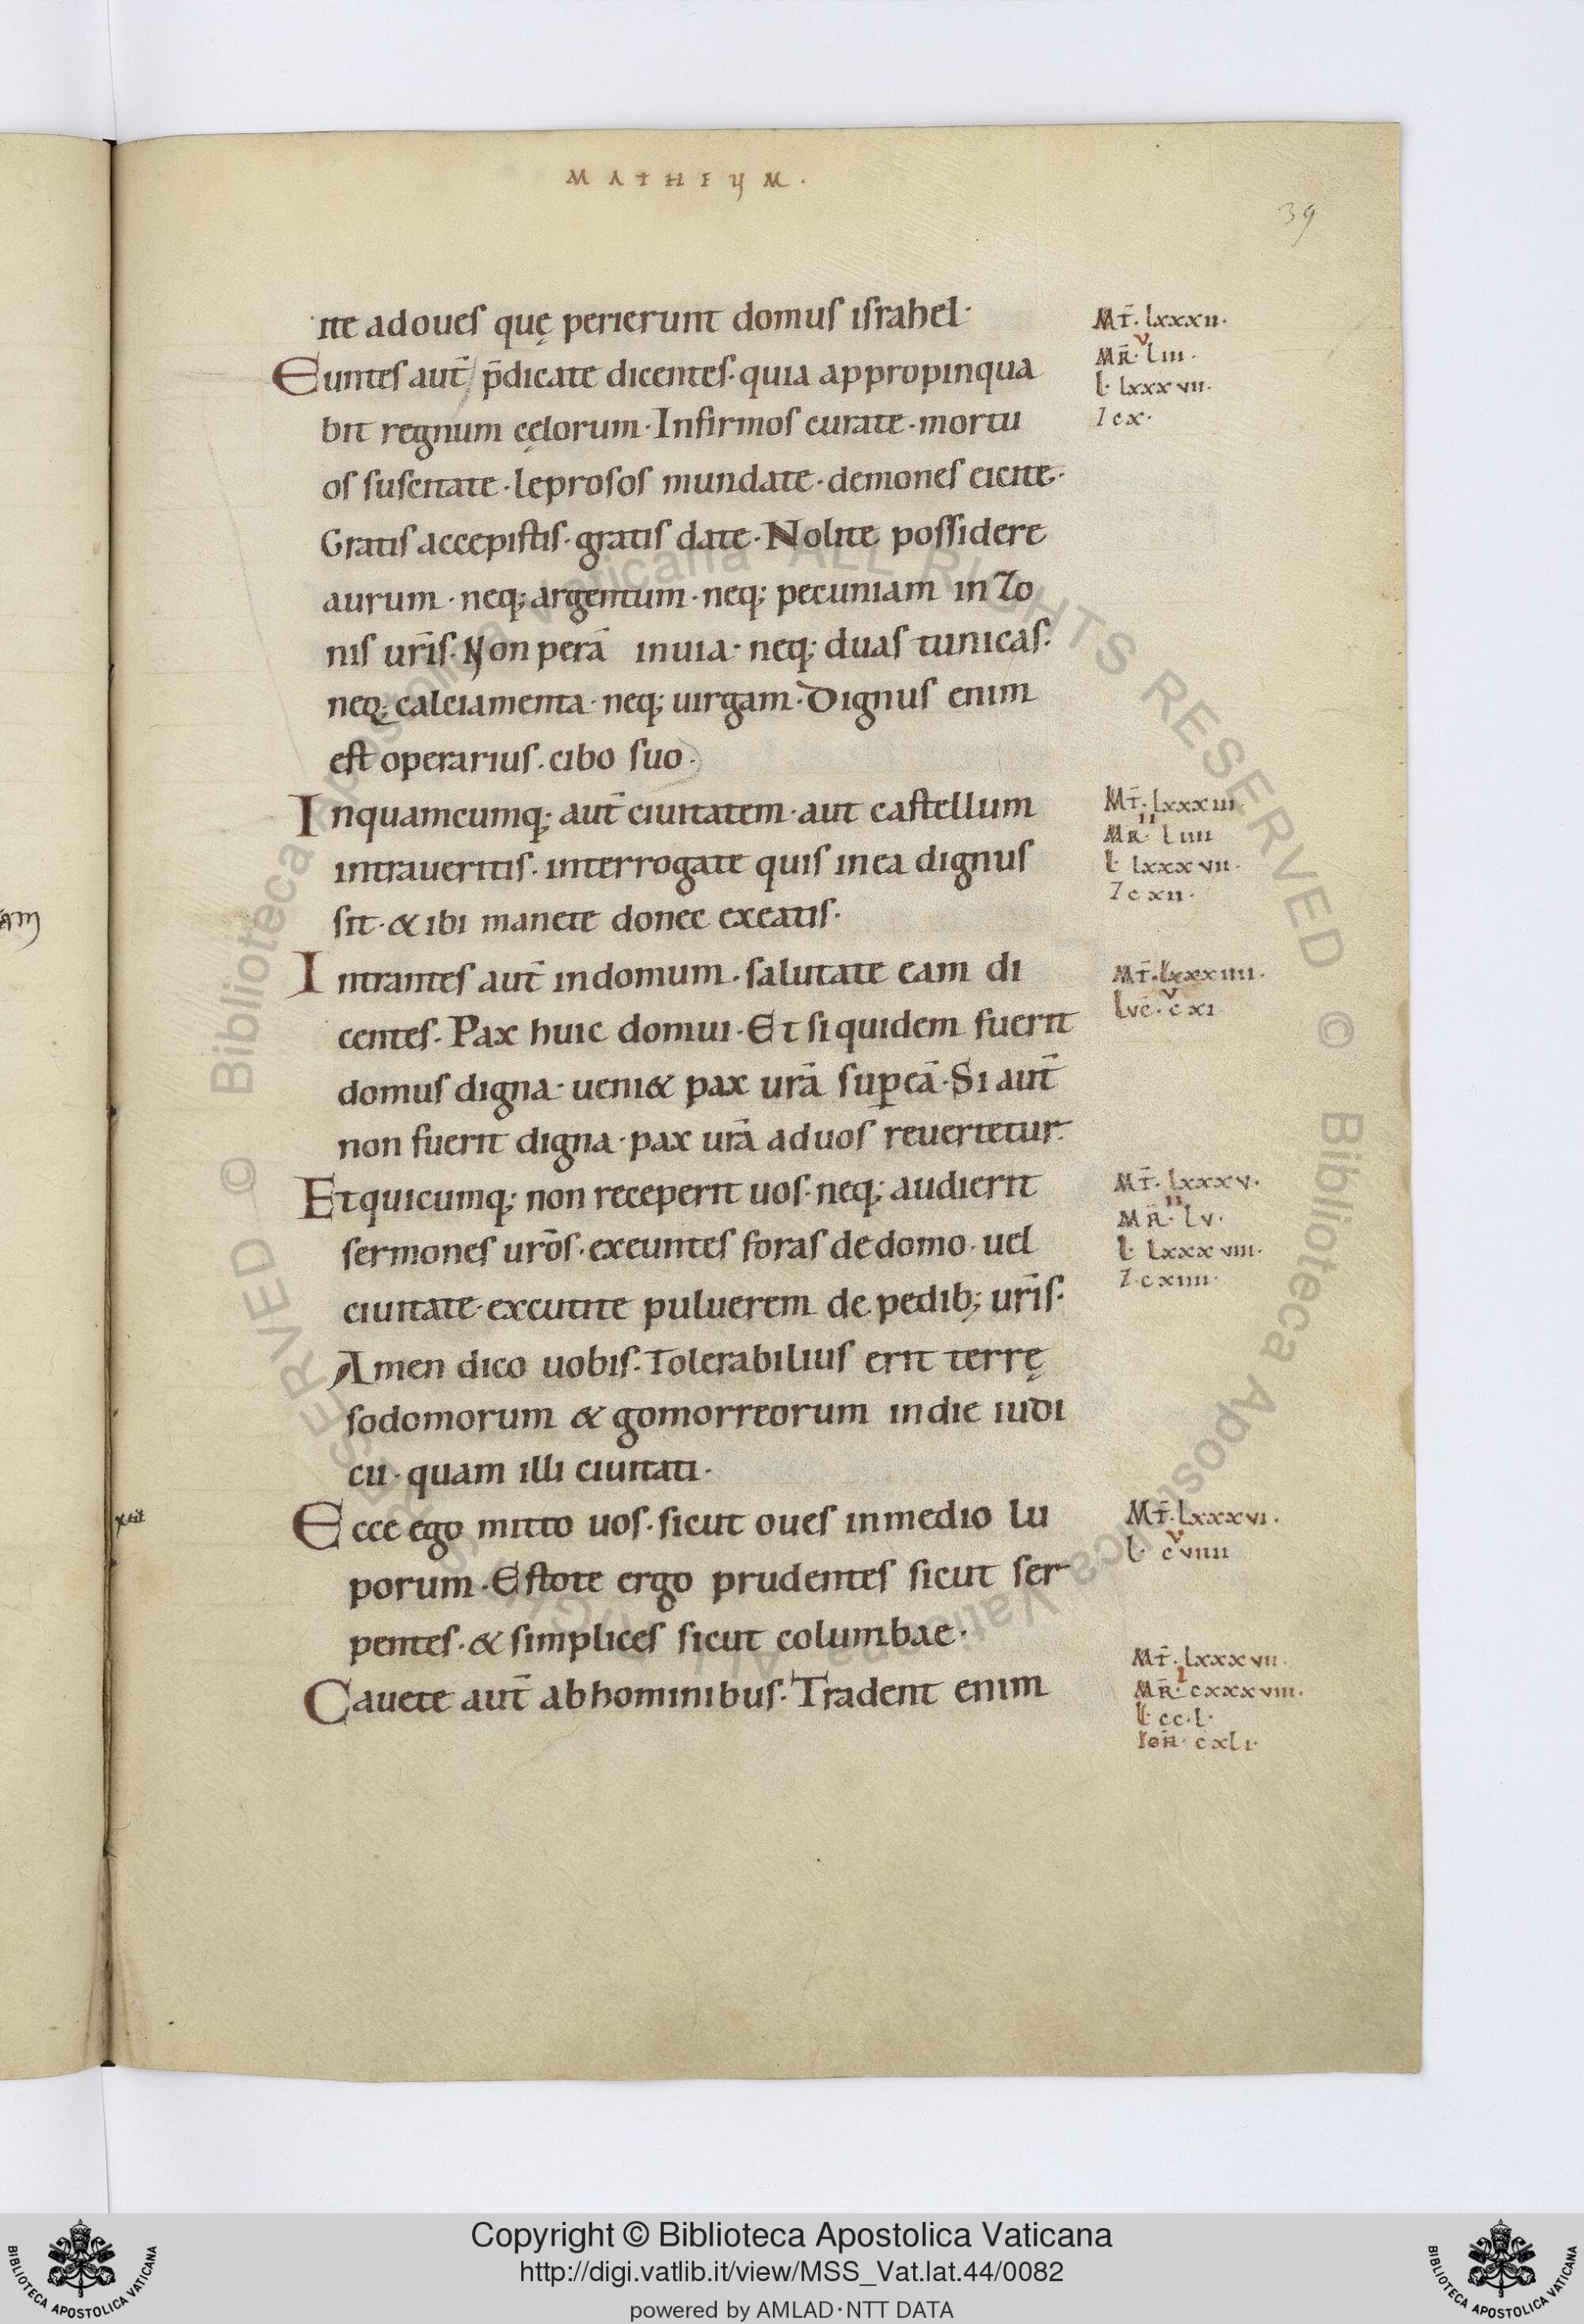 MATHEUM.
39
ite ad oues quę perierunt domus israhel·
Mt̄· lxxxii·
v
MR̄· liii·
l· lxxxvii·
7 cx·
Euntes aut̄ p̄dicate dicentes· quia appropinqua
bit regnum cęlorum· Infirmos curate· mortu
os suscitate· leprosos mundate· demones eicite·
Gratis accepistis· gratis date· Nolite possidere
aurum· neq; argentum· neq; pecuniam in zo
nis ur̄is· Non perā in uia· neq; duas tunicas·
neq; calciamenta· neq; uirgam· Dignus enim
est operarius· cibo suo·
In quamcumq; aut̄ ciuitatem· aut castellum
Mt̄· lxxxiii·
ii
MR̄· liiii
l· lxxxvii·
7 cxii·
intraueritis· interrogate quis in ea dignus
sit· & ibi manete donec exeatis·
Intrantes aut̄ in domum· salutate eam di
Mt̄· lxxxiiii·
v
Luc̄· cxi·
centes· Pax huic domui· Et si quidem fuerit
domus digna· ueni& pax ur̄a sup eā· Si aut̄
non fuerit digna· pax ur̄a ad uos reuertetur·
Et quicumq; non receperit uos· neq; audierit
Mt̄· lxxxv·
ii
MR̄· lv·
l· lxxxviii·
7· cxiiii·
sermones ur̄os· exeuntes foras de domo· uel
ciuitate· excutite puluerem de pedib; ur̄is·
Amen dico uobis· Tolerabilius erit terrę
sodomorum & gomorreorum in die iudi
cii· quam illi ciuitati·
Ecce ego mitto uos· sicut oues in medio lu
Mt̄· lxxxvi·
v
l· cviiii
porum· Estote ergo prudentes sicut ser
pentes· & simplices sicut columbae·
Cauete aut̄ ab hominibus· Tradent enim
Mt̄· lxxxvii·
i
MR̄· cxxxviii·
l· cc·l·
Ioh̄· cxli·
Copyright © Biblioteca Apostolica Vaticana
http://digi.vatlib.it/view/MSS_Vat.lat.44/0082
powered by AMLAD·NTT DATA
BIBLIOTECA APOSTOLICA VATICANA
BIBLIOTECA APOSTOLICA VATICANA
© Biblioteca Apostolica Vaticana ALL RIGHTS RESERVED © Biblioteca Apostolica Vaticana ALL RIGHTS RESERVED